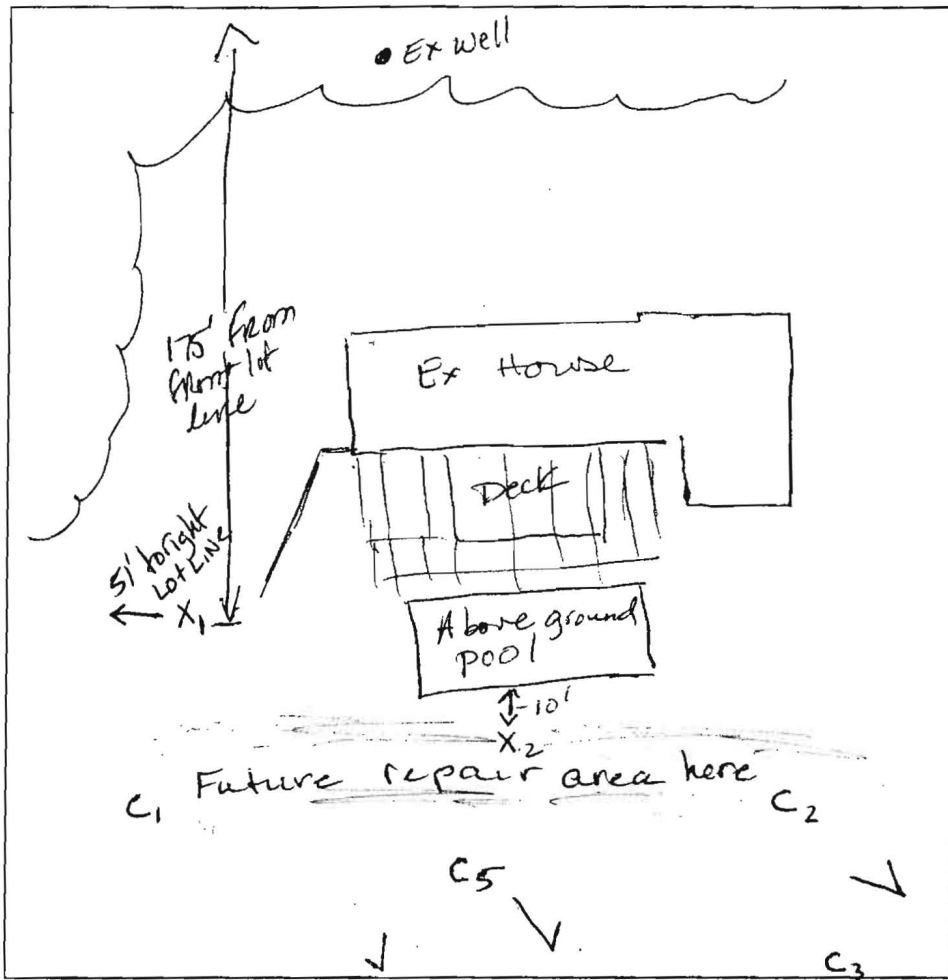 Ex well
175' From
front lot
line
Ex House
Deck
51' to right
Lot Line
X1
Above ground
pool
10'
X2
Future repair area here
C1
C2
C5
C3